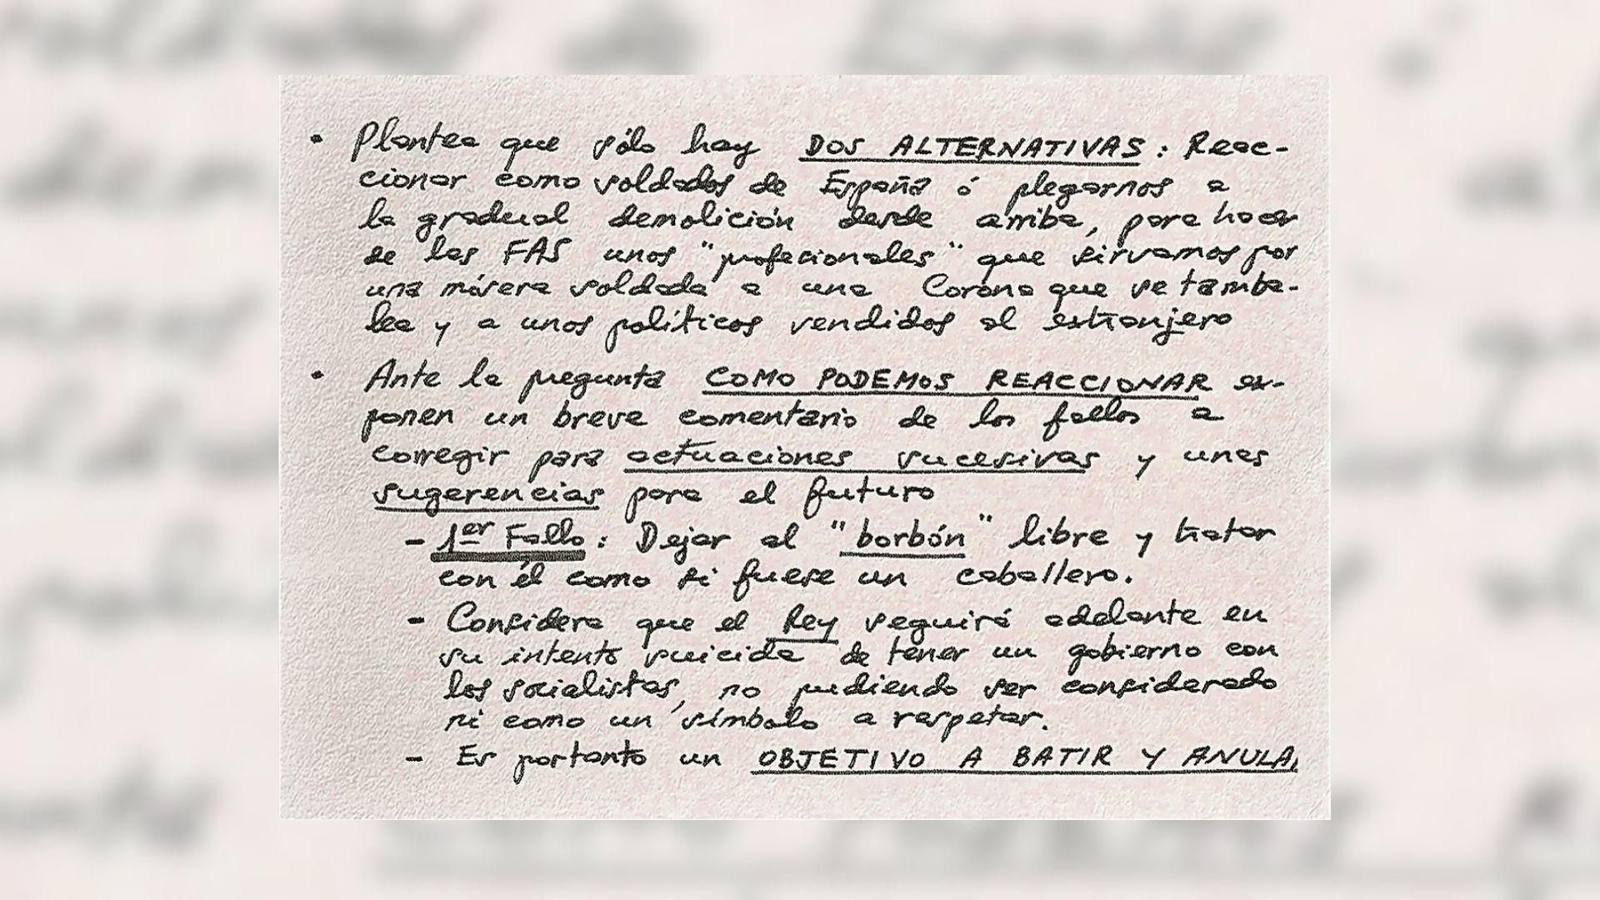 • Plantea que sólo hay DOS ALTERNATIVAS: Reac-
cionar como soldados de España ó plegarnos a
la gradual demolición desde arriba, para hacer
de las FAS unos "profecionales" que sirvamos por
una mísera soldada a una Corona que se tamba-
lea y a unos políticos vendidos al estranjero
• Ante la pregunta COMO PODEMOS REACCIONAR ex-
ponen un breve comentario de los fallos a
corregir para actuaciones sucesivas y unas
sugerencias para el futuro
- 1er Fallo: Dejar al "borbón" libre y tratar
con él como si fuese un caballero.
- Considera que el Rey seguirá adelante en
su intento suicida de tener un gobierno con
los socialistas, no pudiendo ser considerado
ni como un símbolo a respetar.
- Es portanto un OBJETIVO A BATIR Y ANULA